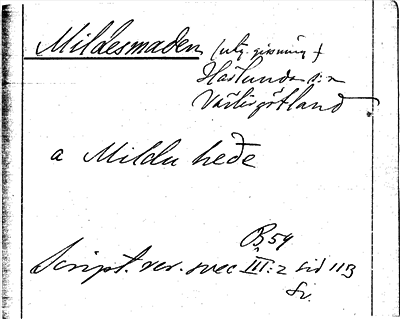 Mildesmaden (utg. gissning f
Haslunda s:n
Västergötland
a Mildu heðe
B 59
Script. rer. svec. III:2 sid 113
Sv.